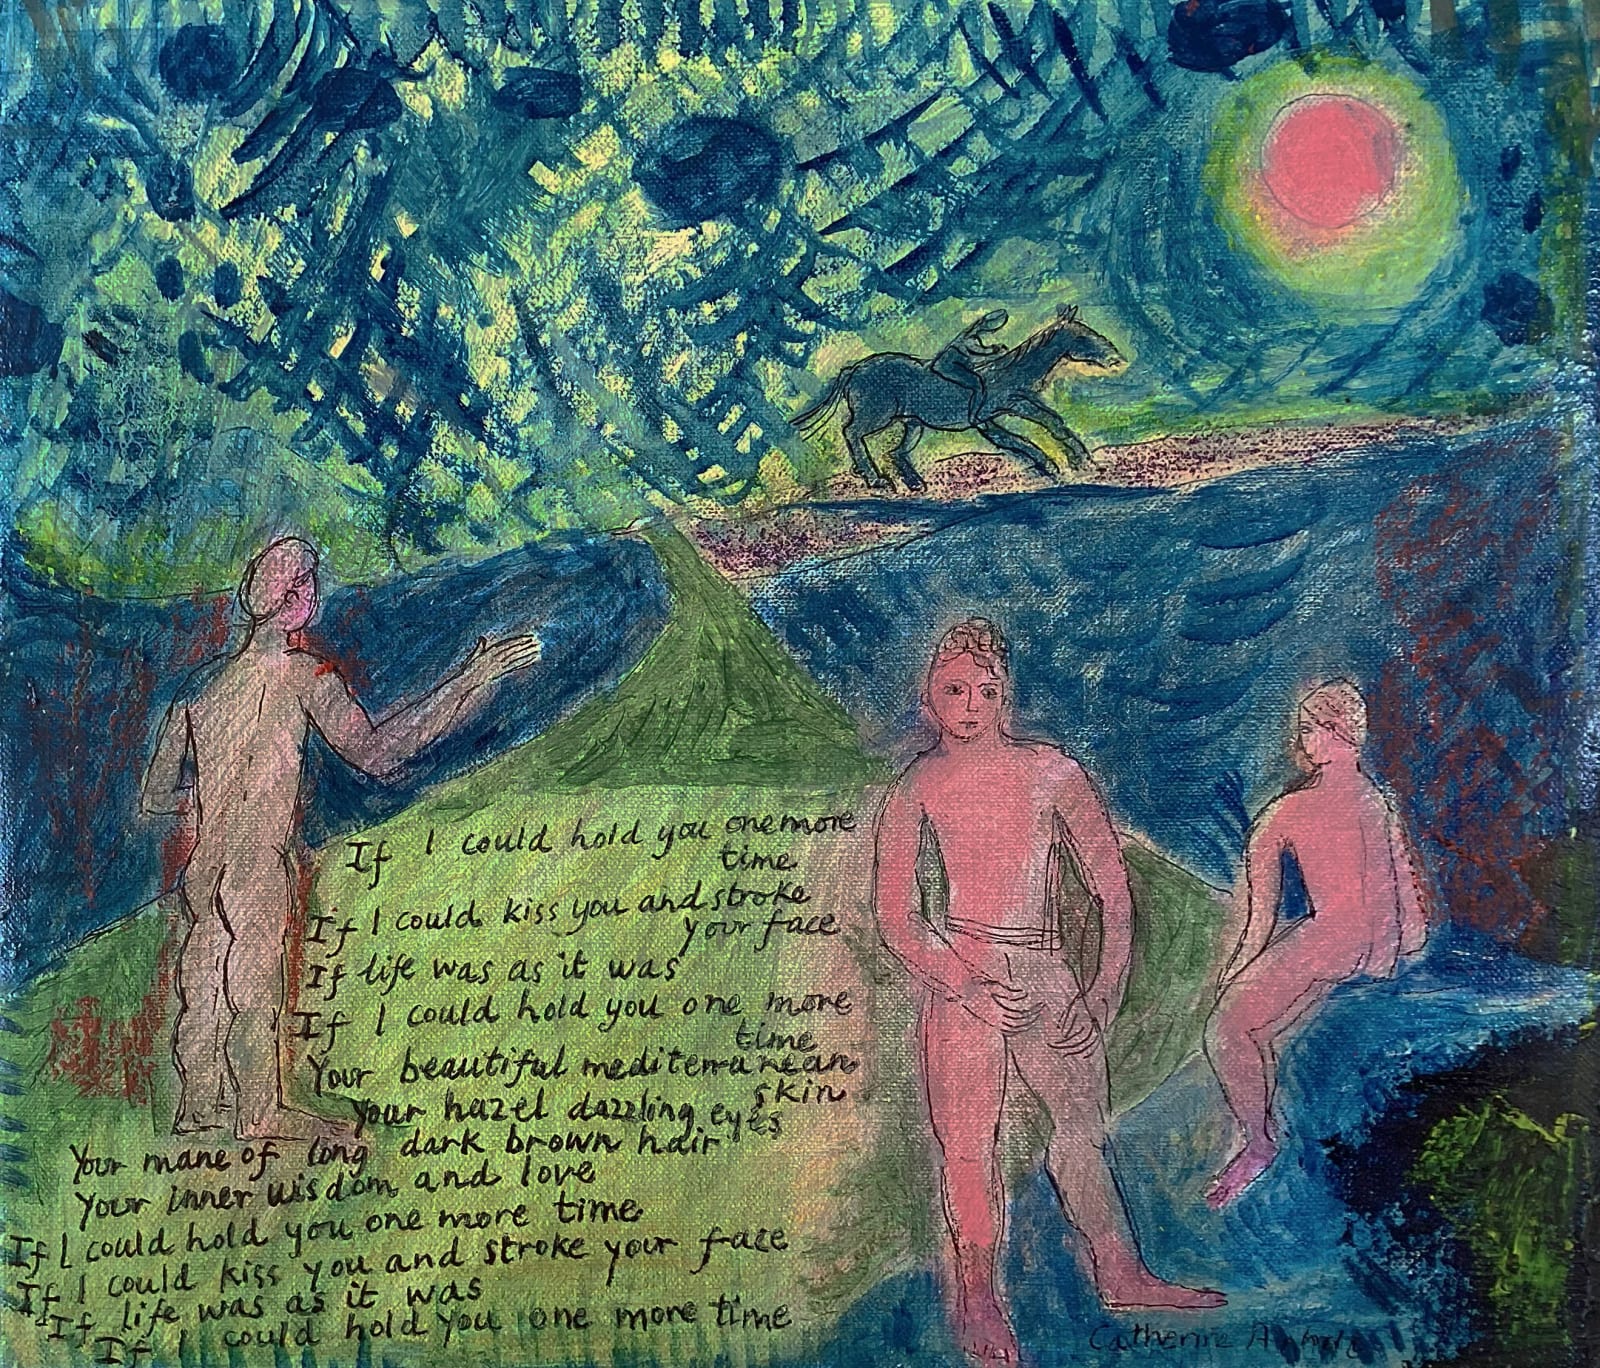 If I could hold you one more
time
If I could kiss you and stroke
your face
If life was as it was
If I could hold you one more
time
Your beautiful mediterranean
skin
Your hazel dazzling eyes
Your mane of long dark brown hair
Your inner wisdom and love
If I could hold you one more time
If I could kiss you and stroke your face
If life was as it was
If I could hold you one more time
Catherine